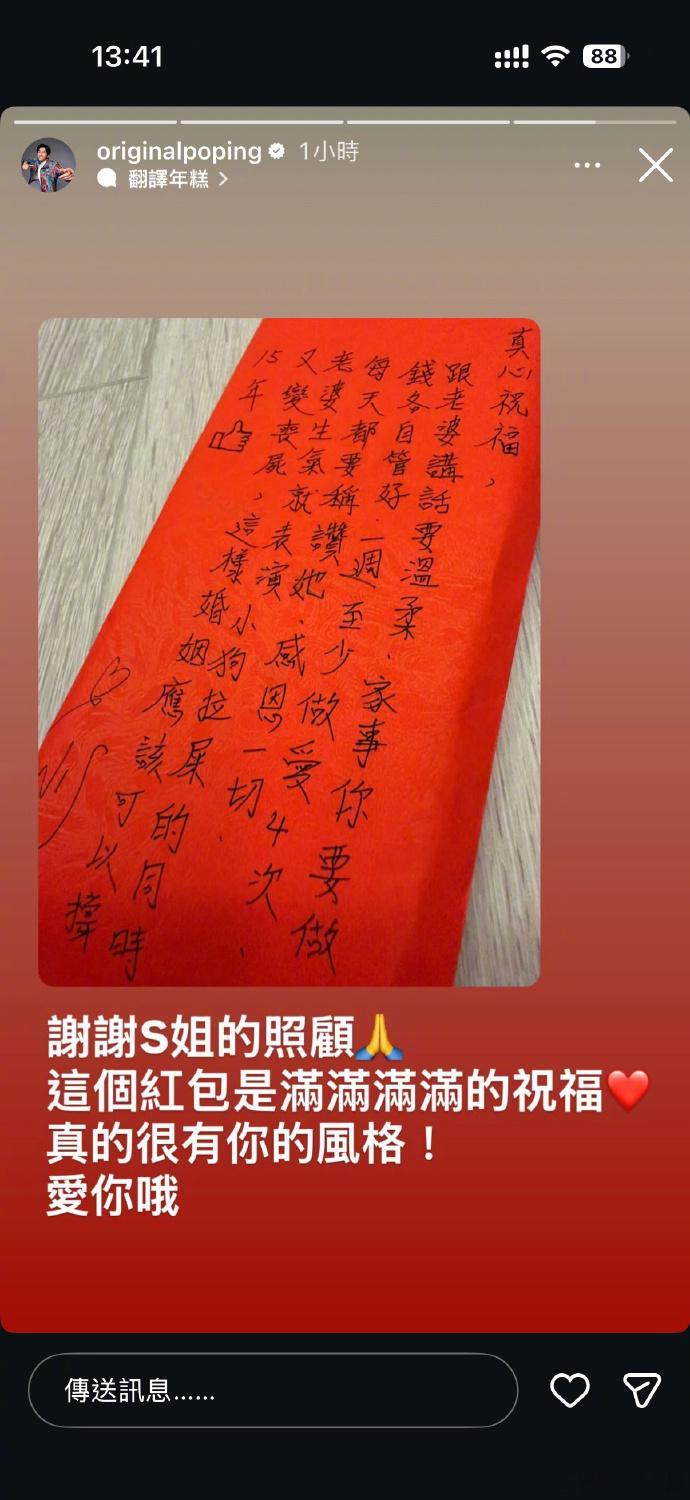 13:41
88
originalpoping 1小時
翻譯年糕
真心祝福,
跟老婆講話要溫柔.家事你要做
錢各自管好.一週至少做愛4次.
每天都要稱讚她.感恩一切.
老婆生氣就表演小狗拉屎的同時
又變喪屍,這樣婚姻應該可以撐
15年
謝謝S姐的照顧🙏
這個紅包是滿滿滿滿的祝福❤️
真的很有你的風格！
愛你哦
傳送訊息......